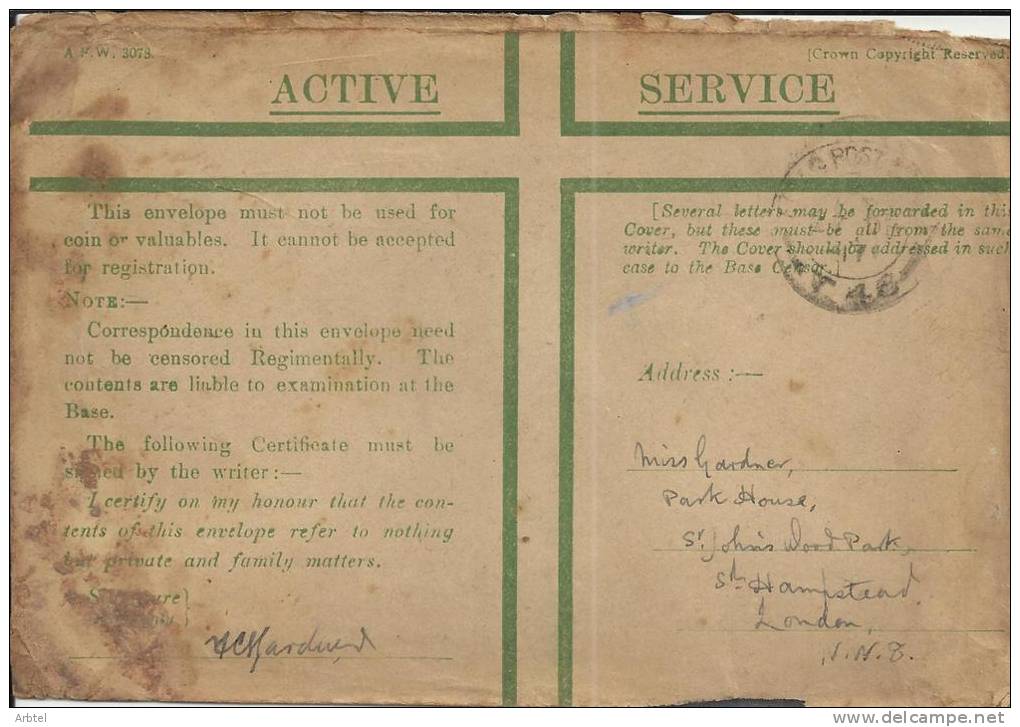 A.F.W. 3078.
[Crown Copyright Reserved.
ACTIVE SERVICE
This envelope must not be used for
coin or valuables. It cannot be accepted
for registration.
NOTE:—
Correspondence in this envelope need
not be censored Regimentally. The
contents are liable to examination at the
Base.
The following Certificate must be
signed by the writer:—
I certify on my honour that the con-
tents of this envelope refer to nothing
but private and family matters.
[Several letters may be forwarded in this
Cover, but these must be all from the same
writer. The Cover should be addressed in such
case to the Base Censor.]
POST
17
48
Address:—
Miss Gardner,
Park House,
St. John's Wood Park,
Sth Hampstead
London,
N.W.8.
Arbtel
http://www.delcampe.net